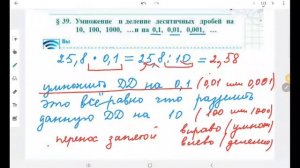 § 39. Умножение и деление десятичных дробей на
10, 100, 1000, ...и на 0,1, 0,01, 0,001, ...
Вы
25,8 · 0,1 = 25,8 : 10 = 2,58
умножить DD на 0,1 (0,01 или 0,001)
это всё равно что разделить
данную DD на 10 (100 или 1000)
перенос запятой вправо (умнож)
влево (деление)